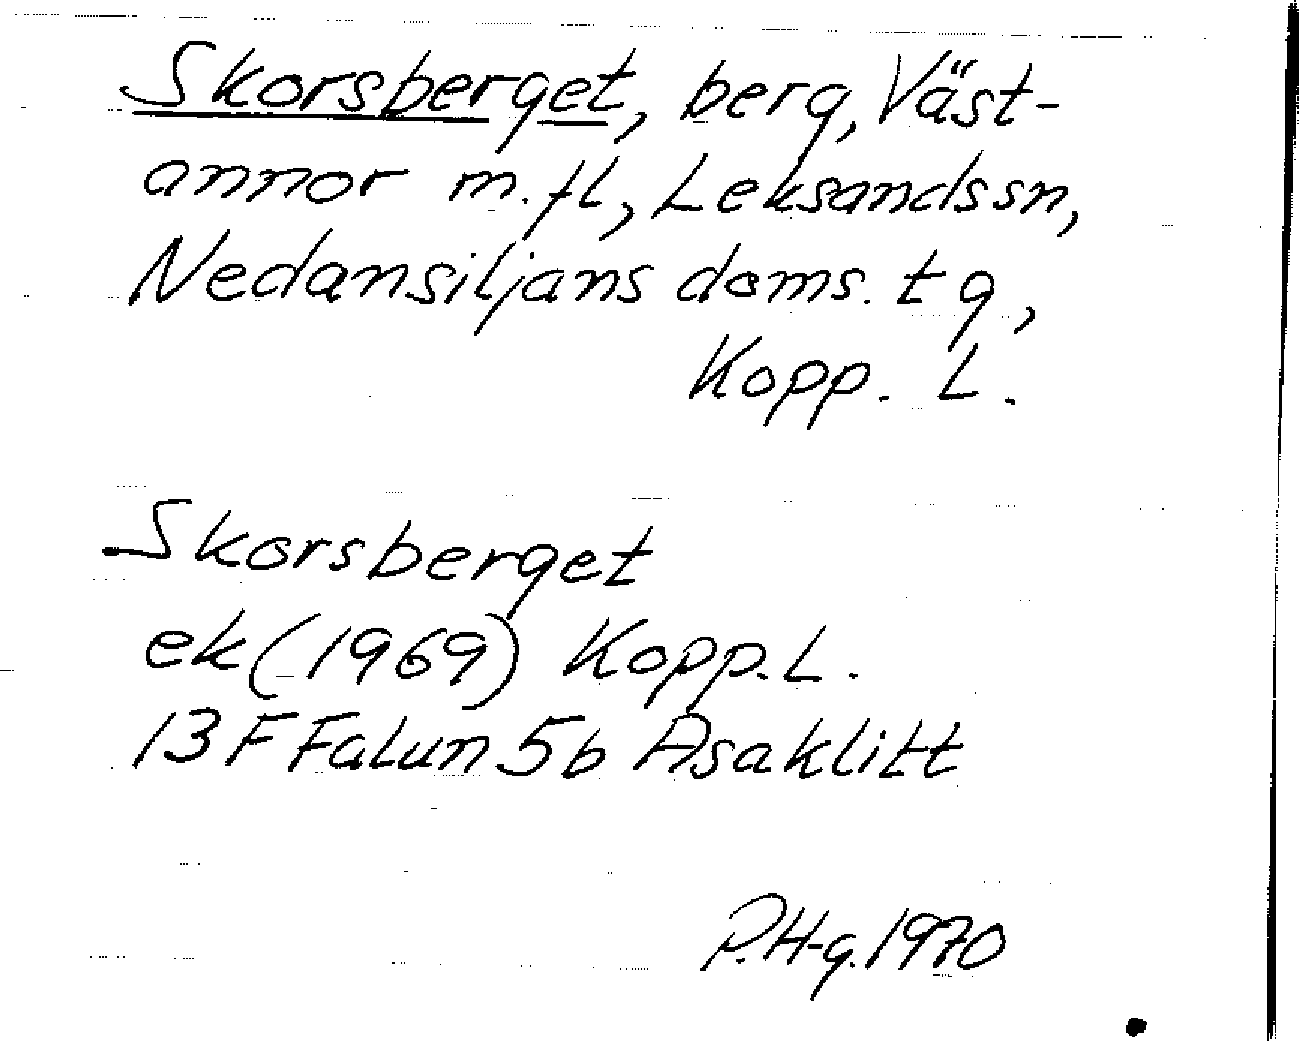 Skorsberget, berg, Väst-
annor m.fl, Leksands sn,
Nedansiljans doms. tg,
Kopp. L.
Skorsberget
ek (1969) Kopp. L.
13 F Falun 5b Asaklitt
P.H-g. 1970